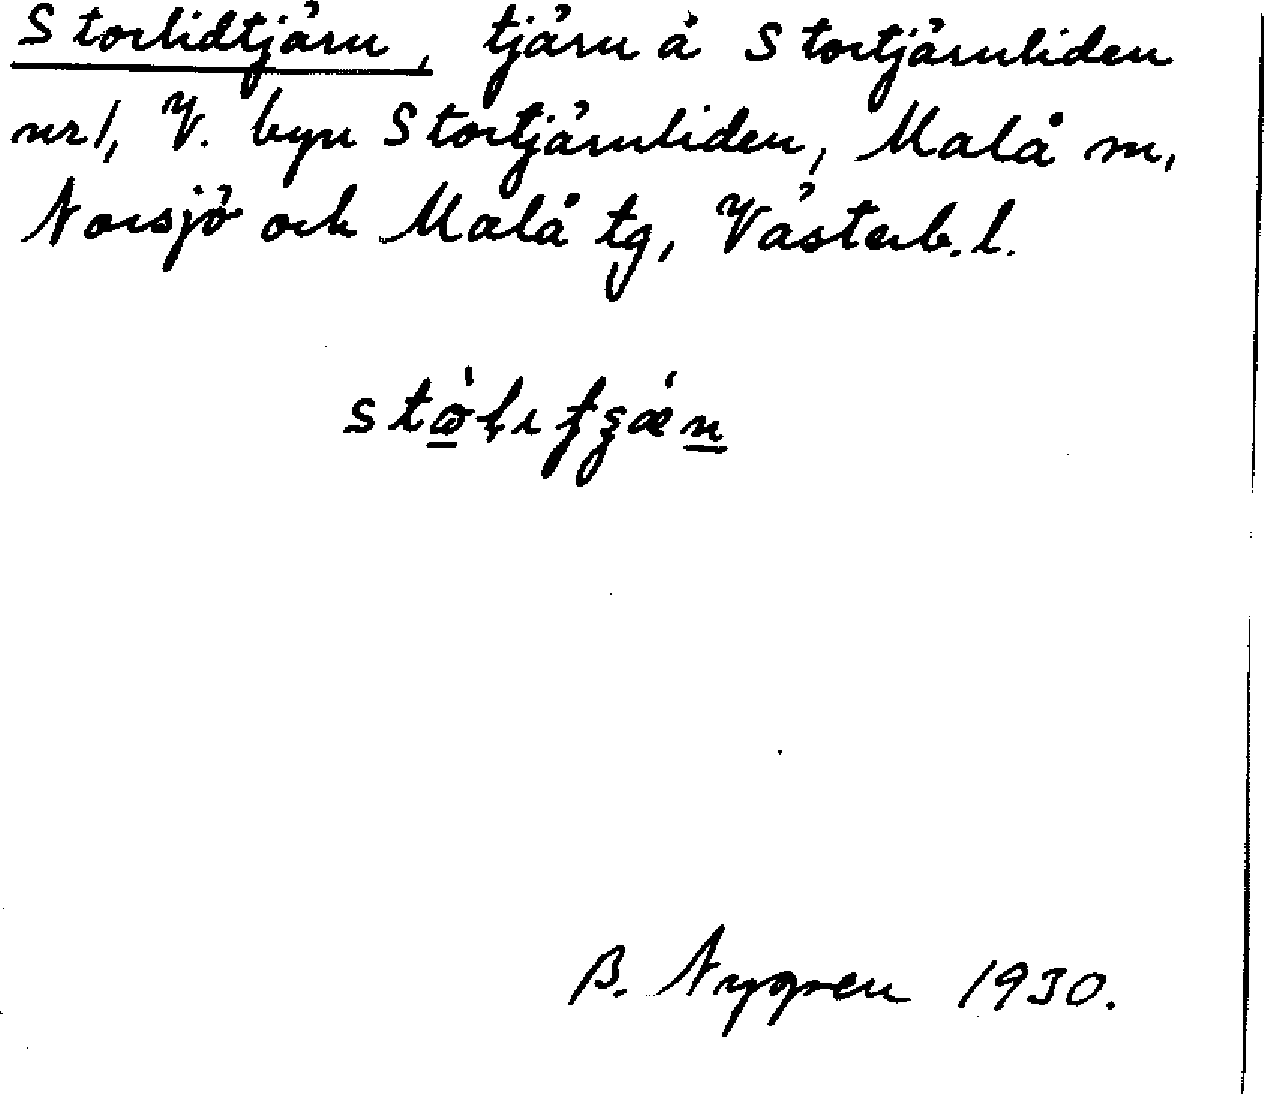 Storlidtjärn, tjärn å Stortjärnliden
nr 1, V. byn Stortjärnliden, Malå sn,
Norsjö och Malå tg, Västerb. l.
B. Nygren 1930.